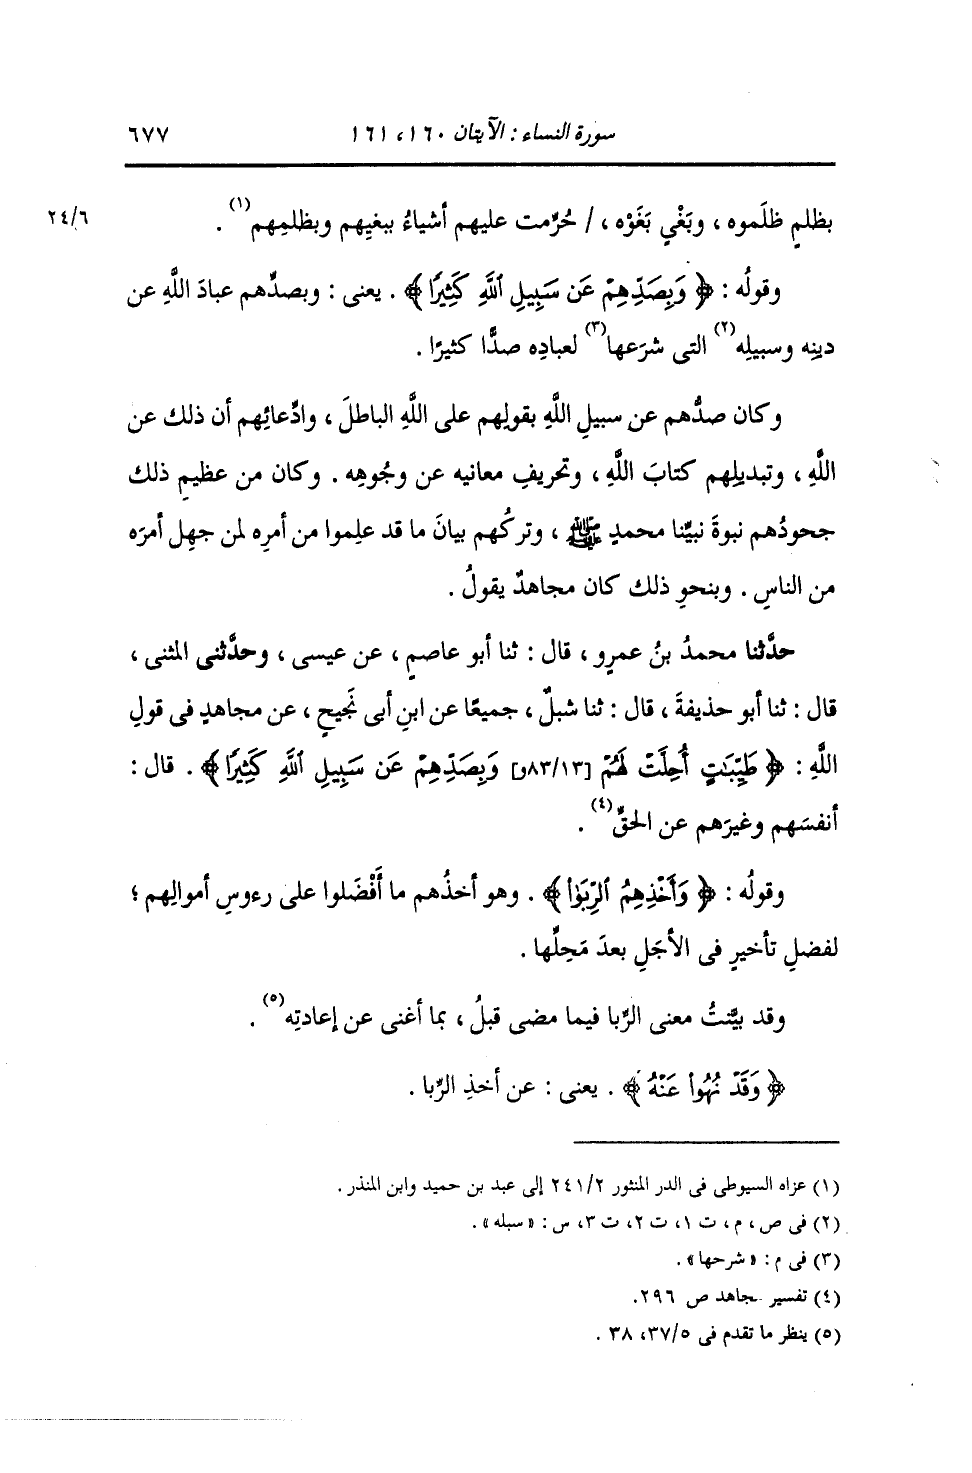 سورة النساء : الآيتان ١٦٠، ١٦١ ٦٧٧
بظلمٍ ظلَموه ، وبَغْيٍ بَغَوْه ، / حُرِّمت عليهم أشياءُ ببغيِهم وبظلمِهم(١) . ٢٤/٦
وقولُه : ﴿ وَبِصَدِّهِمْ عَن سَبِيلِ ٱللَّهِ كَثِيرًا ﴾ . يعنى : وبصدِّهم عبادَ اللَّهِ عن
دينِه وسبيلِه(٢) التى شرَعها(٣) لعبادِه صدًّا كثيرًا .
وكان صدُّهم عن سبيلِ اللَّهِ بقولِهم على اللَّهِ الباطلَ ، وادِّعائِهم أن ذلك عن
اللَّهِ ، وتبديلِهم كتابَ اللَّهِ ، وتحريفِ معانيه عن وجُوهِه . وكان من عظيمِ ذلك
جحودُهم نبوةَ نبيِّنا محمدٍ ﷺ ، وتركُهم بيانَ ما قد علِموا من أمرِه لمن جهِل أمرَه
من الناسِ . وبنحوِ ذلك كان مجاهدٌ يقولُ .
حدَّثنا محمدُ بنُ عمرٍو ، قال : ثنا أبو عاصمٍ ، عن عيسى ، وحدَّثنى المثنى ،
قال : ثنا أبو حذيفةَ ، قال : ثنا شبلٌ ، جميعًا عن ابنِ أبى نَجيحٍ ، عن مجاهدٍ فى قولِ
اللَّهِ : ﴿ طَيِّبَٰتٍ أُحِلَّتْ لَهُمْ [٨٣/١٣و] وَبِصَدِّهِمْ عَن سَبِيلِ ٱللَّهِ كَثِيرًا ﴾ . قال :
أنفسَهم وغيرَهم عن الحقِّ(٤) .
وقولُه : ﴿ وَأَخْذِهِمُ ٱلرِّبَوٰا۟ ﴾ . وهو أخذُهم ما أَفْضَلوا على رءوسِ أموالِهم ؛
لفضلِ تأخيرٍ فى الأجَلِ بعدَ مَحِلِّها .
وقد بيَّنتُ معنى الرِّبا فيما مضى قبلُ ، بما أغنى عن إعادتِه(٥) .
﴿ وَقَدْ نُهُوا۟ عَنْهُ ﴾ . يعنى : عن أخذِ الرِّبا .
(١) عزاه السيوطى فى الدر المنثور ٢٤١/٢ إلى عبد بن حميد وابن المنذر .
(٢) فى ص ، م ، ت ١، ت ٢، ت ٣، س : « سبله » .
(٣) فى م : « شرحها» .
(٤) تفسير مجاهد ص ٢٩٦.
(٥) ينظر ما تقدم فى ٣٧/٥، ٣٨ .